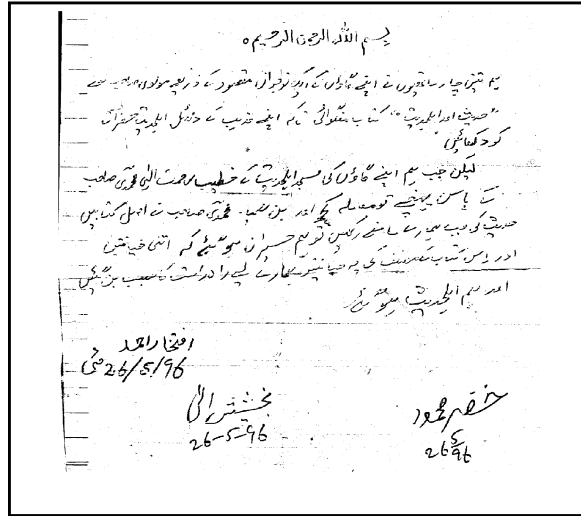 بسم اللہ الرحمن الرحیم ہ
ہم تین چار ساتھیوں نے اپنے گاؤں کے ایک نوجوان مقصود کے ذریعہ مولوی صاحب سے
"حدیث اور اہلحدیث" کتاب منگوائی تاکہ اپنے مذہب کے دلائل اہلحدیث حضرات
کو دکھائیں
لیکن جب ہم اپنے گاؤں کی مسجد اہلحدیث کے خطیب رحمت الٰہی محمدی صاحب
کے پاس پہنچے تو معاملہ کچھ اور بن گیا۔ محمدی صاحب نے اصل کتابیں
حدیث کی جب ہمارے سامنے رکھیں تو ہم حیران ہو گئے کہ اتنی خیانتیں
اور اس کتاب کے مصنف کی یہ خیانتیں ہمارے لیے راہ راست کا سبب بن گئیں
اور ہم اہلحدیث ہو گئے
افتخار احمد
26/5/96 مئی
بخشش الٰہی
26-5-96
خضر محمود
26 5/96